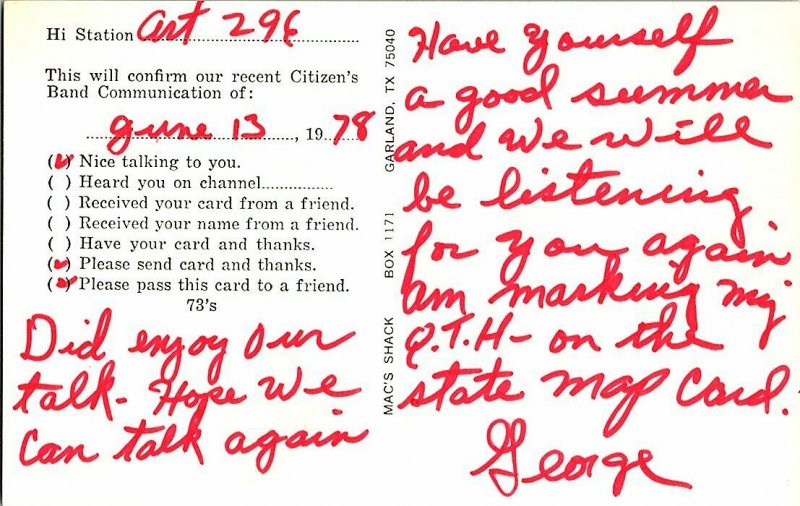 Hi Station Art 296
This will confirm our recent Citizen's
Band Communication of:
June 13, 1978
(✓) Nice talking to you.
( ) Heard you on channel................
( ) Received your card from a friend.
( ) Received your name from a friend.
( ) Have your card and thanks.
(✓) Please send card and thanks.
(✓) Please pass this card to a friend.
73's
Did enjoy our
talk - Hope we
Can talk again
MAC'S SHACK BOX 1171 GARLAND, TX 75040
Have yourself
a good summer
and we will
be listening
for you again
am marking my
Q.T.H - on the
state map card.
George